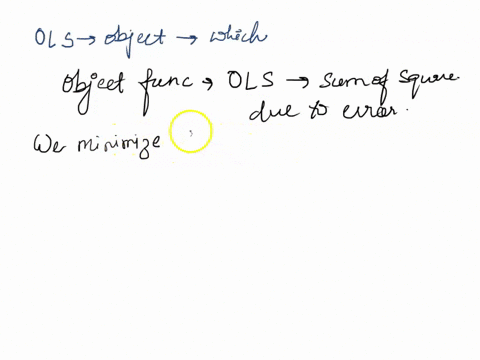 OLS → object → which
Object func → OLS → Sum of Square
due to error.
We minimize